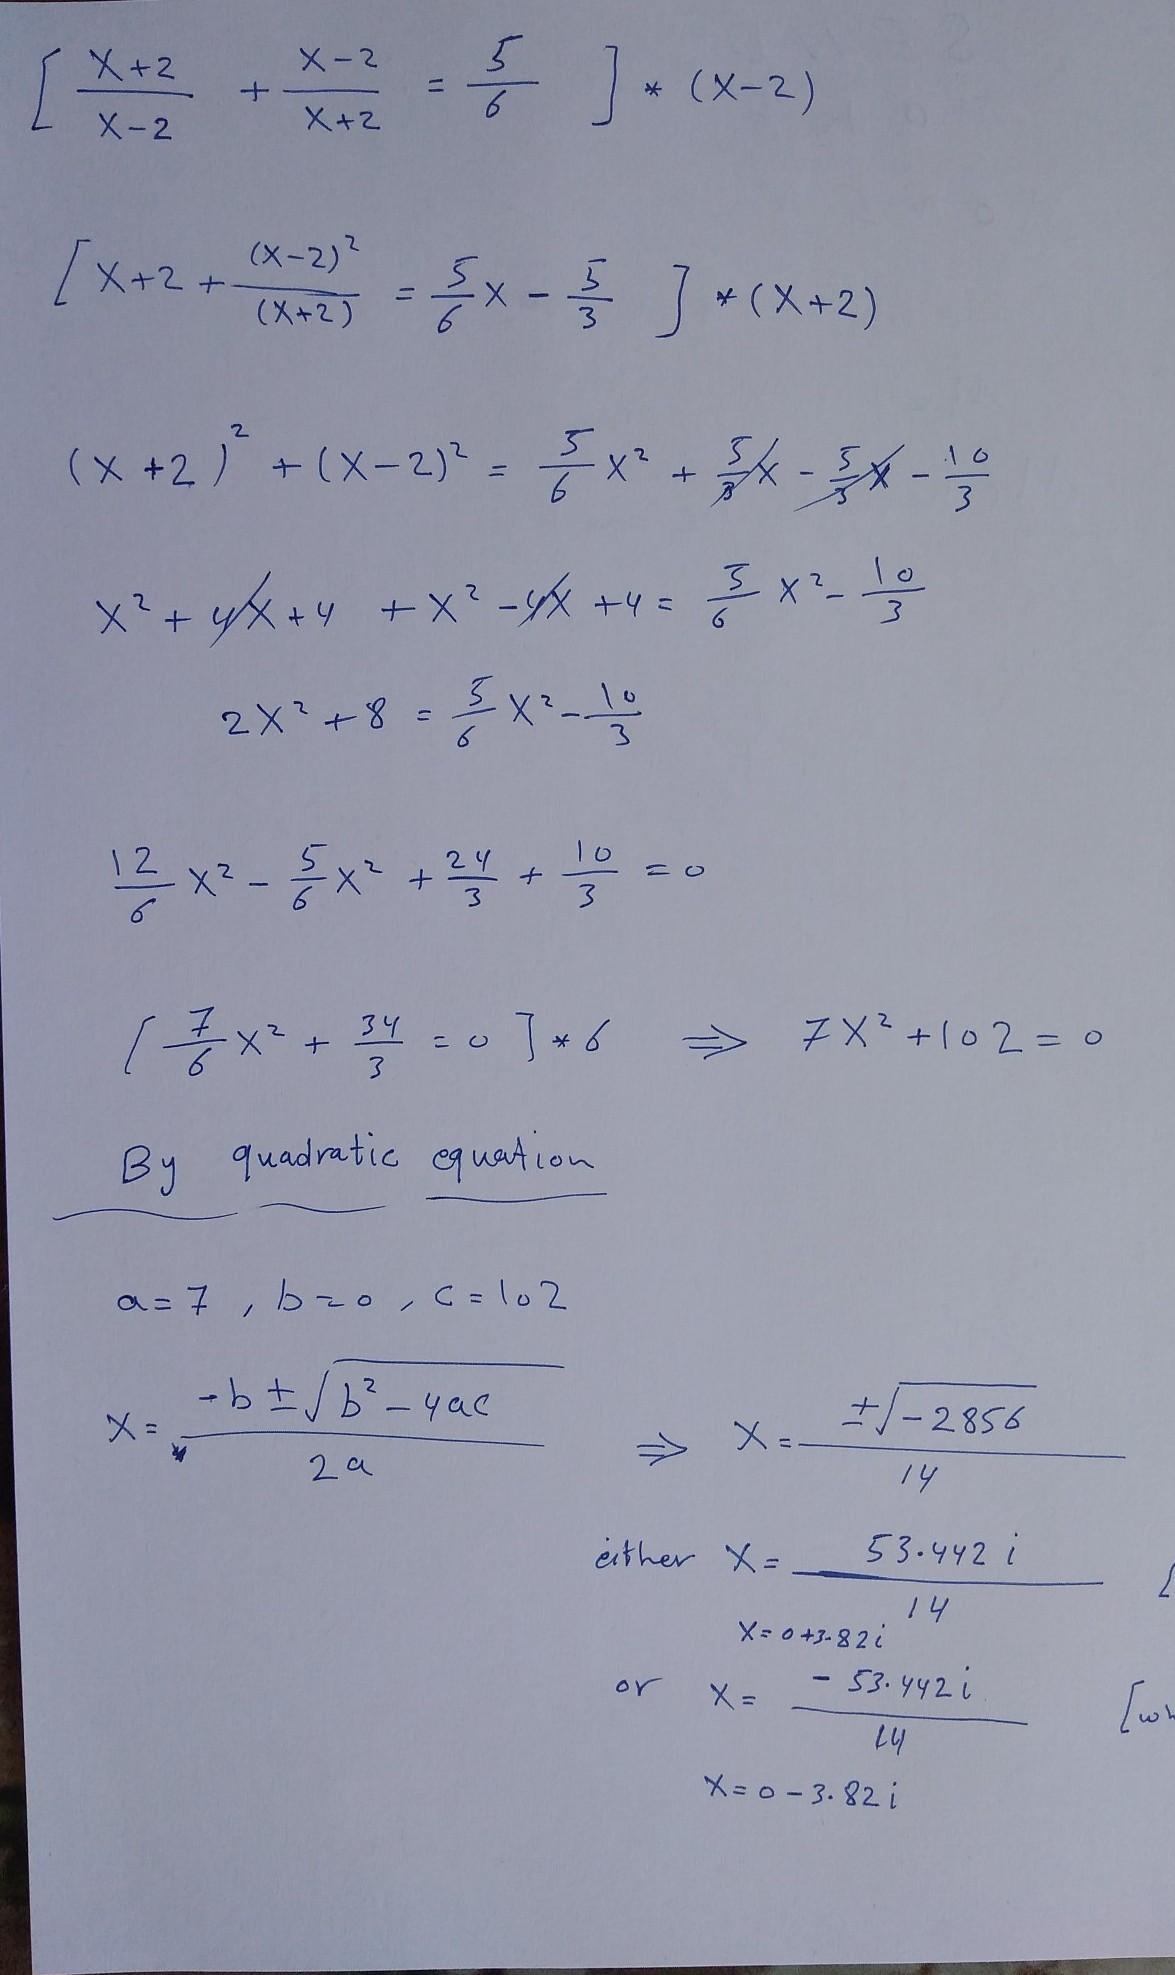 [ (x+2)/(x-2) + (x-2)/(x+2) = 5/6 ] * (x-2)
[ x+2 + (x-2)²/(x+2) = 5/6 x - 5/3 ] * (x+2)
(x+2)² + (x-2)² = 5/6 x² + 5/3 x - 5/3 x - 10/3
x² + 4x + 4 + x² - 4x + 4 = 5/6 x² - 10/3
2x² + 8 = 5/6 x² - 10/3
12/6 x² - 5/6 x² + 24/3 + 10/3 = 0
[ 7/6 x² + 34/3 = 0 ] * 6 ⇒ 7x² + 102 = 0
By quadratic equation
a = 7 , b = 0 , c = 102
x = (-b ± √(b² - 4ac))/2a ⇒ x = ±√(-2856)/14
either x = 53.442 i/14 [
x = 0 + 3.82 i
or x = -53.442 i/14 [wh
x = 0 - 3.82 i